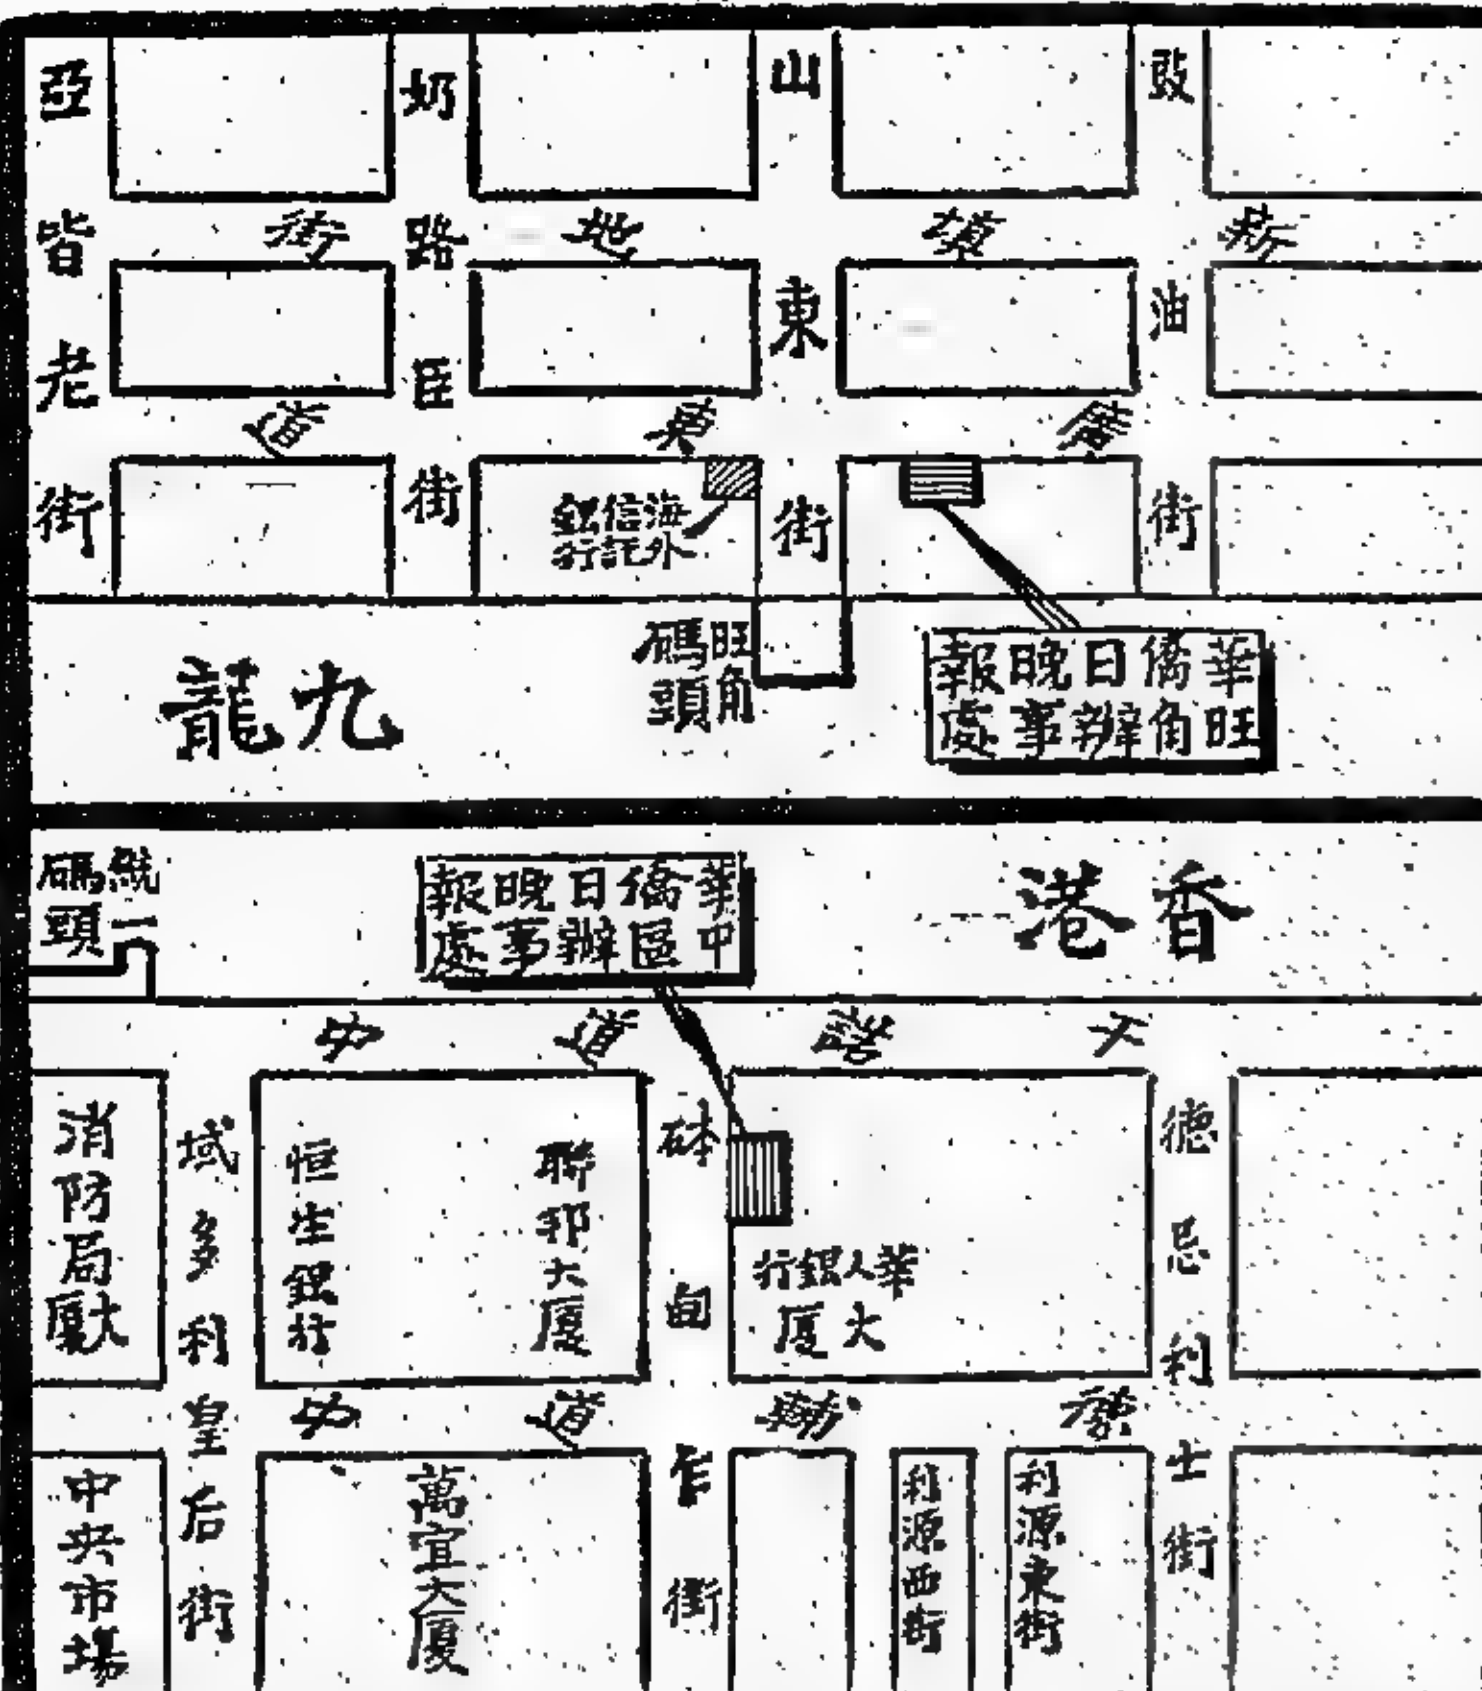 亞皆老街
奶路臣街
山東街
豉油街
新填地街
廣東道
海外
信託
銀行
旺角
碼頭
華僑日晚報
旺角辦事處
九龍
統一
碼頭
華僑日晚報
中區辦事處
香港
干諾道中
消防局大廈
域多利皇后街
恒生銀行
聯邦大廈
砵甸乍街
華人銀行
大廈
德忌利士街
德輔道中
中央市場
萬宜大廈
利源西街
利源東街